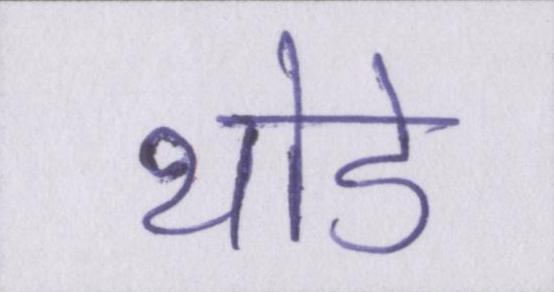 थोडे